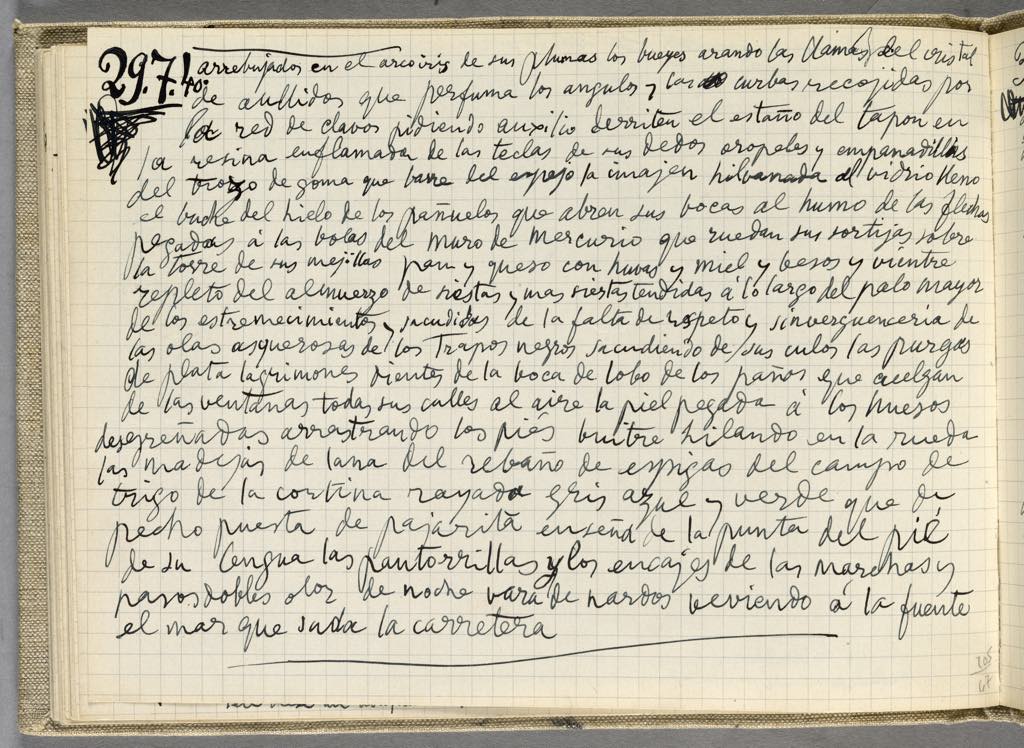 29.7.40. arrebujados en el arcoiris de sus plumas los bueyes arando las llamas del cristal
de aullidos que perfuma los angulos y las curbas recojidas por
la red de clavos pidiendo auxilio derriten el estaño del tapon en
la resina enflamada de las teclas de sus dedos oropeles y empanadillas
del trozo de goma que barre del espejo la imajen hilbanada al vidrio lleno
el buche del hielo de los pañuelos que abren sus bocas al humo de las flechas
pegadas á las bolas del muro de mercurio que ruedan sus sortijas sobre
la torre de sus mejillas pan y queso con huvas y miel y besos y vientre
repleto del almuerzo de siestas y mas siestas tendidas á lo largo del palo mayor
de los estremecimientos y sacudidas de la falta de respeto y sinverguenceria de
las olas asquerosas de los trapos negros sacudiendo de sus culos las purgas
de plata lagrimones dientes de la boca de lobo de los paños que cuelgan
de las ventanas todas sus calles al aire la piel pegada á los huesos
desgreñadas arrastrando los piés buitre hilando en la rueda
las madejas de lana del rebaño de espigas del campo de
trigo de la cortina rayada gris azul y verde que de
pecho puesta de pajarita enseña de la punta del pié
de su lengua las pantorrillas y los encajes de las marchas y
pasosdobles olor de noche vara de nardos veviendo á la fuente
el mar que suda la carretera
205
67